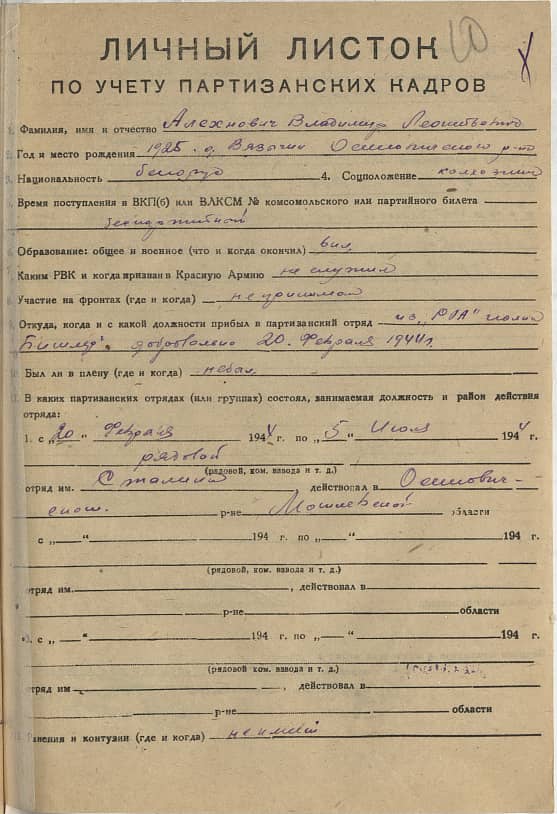 ЛИЧНЫЙ ЛИСТОК
ПО УЧЕТУ ПАРТИЗАНСКИХ КАДРОВ
1. Фамилия, имя и отчество Алехнович Владимир Леонтьевич
2. Год и место рождения 1925 г. д. Вязычин Осиповичского р-на
3. Национальность белорус 4. Соцположение колхозник
5. Время поступления в ВКП(б) или ВЛКСМ № комсомольского или партийного билета
беспартийный
6. Образование: общее и военное (что и когда окончил)
7. Каким РВК и когда призван в Красную Армию не служил
8. Участие на фронтах (где и когда) не принимал
9. Откуда, когда и с какой должности прибыл в партизанский отряд из „РОА"
добровольно 20. Февраля 1944 г.
10. Был ли в плену (где и когда) не был
11. В каких партизанских отрядах (или группах) состоял, занимаемая должность и район действия
отряда:
1. с „20" Февраля 1944 г. по „5" Июля 1944 г.
рядовой
(рядовой, ком. взвода и т. д.)
отряд им. Сталина действовал в Осипович-
ском р-не Могилевской области
с „ " 194 г. по „ " 194 г.
(рядовой, ком. взвода и т. д.)
отряд им. , действовал в
р-не области
3. с „ " 194 г. по „ " 194 г.
(рядовой ком. взвода и т. д.)
отряд им , действовал в
р-не области
12. Ранения и контузии (где и когда) не имеет